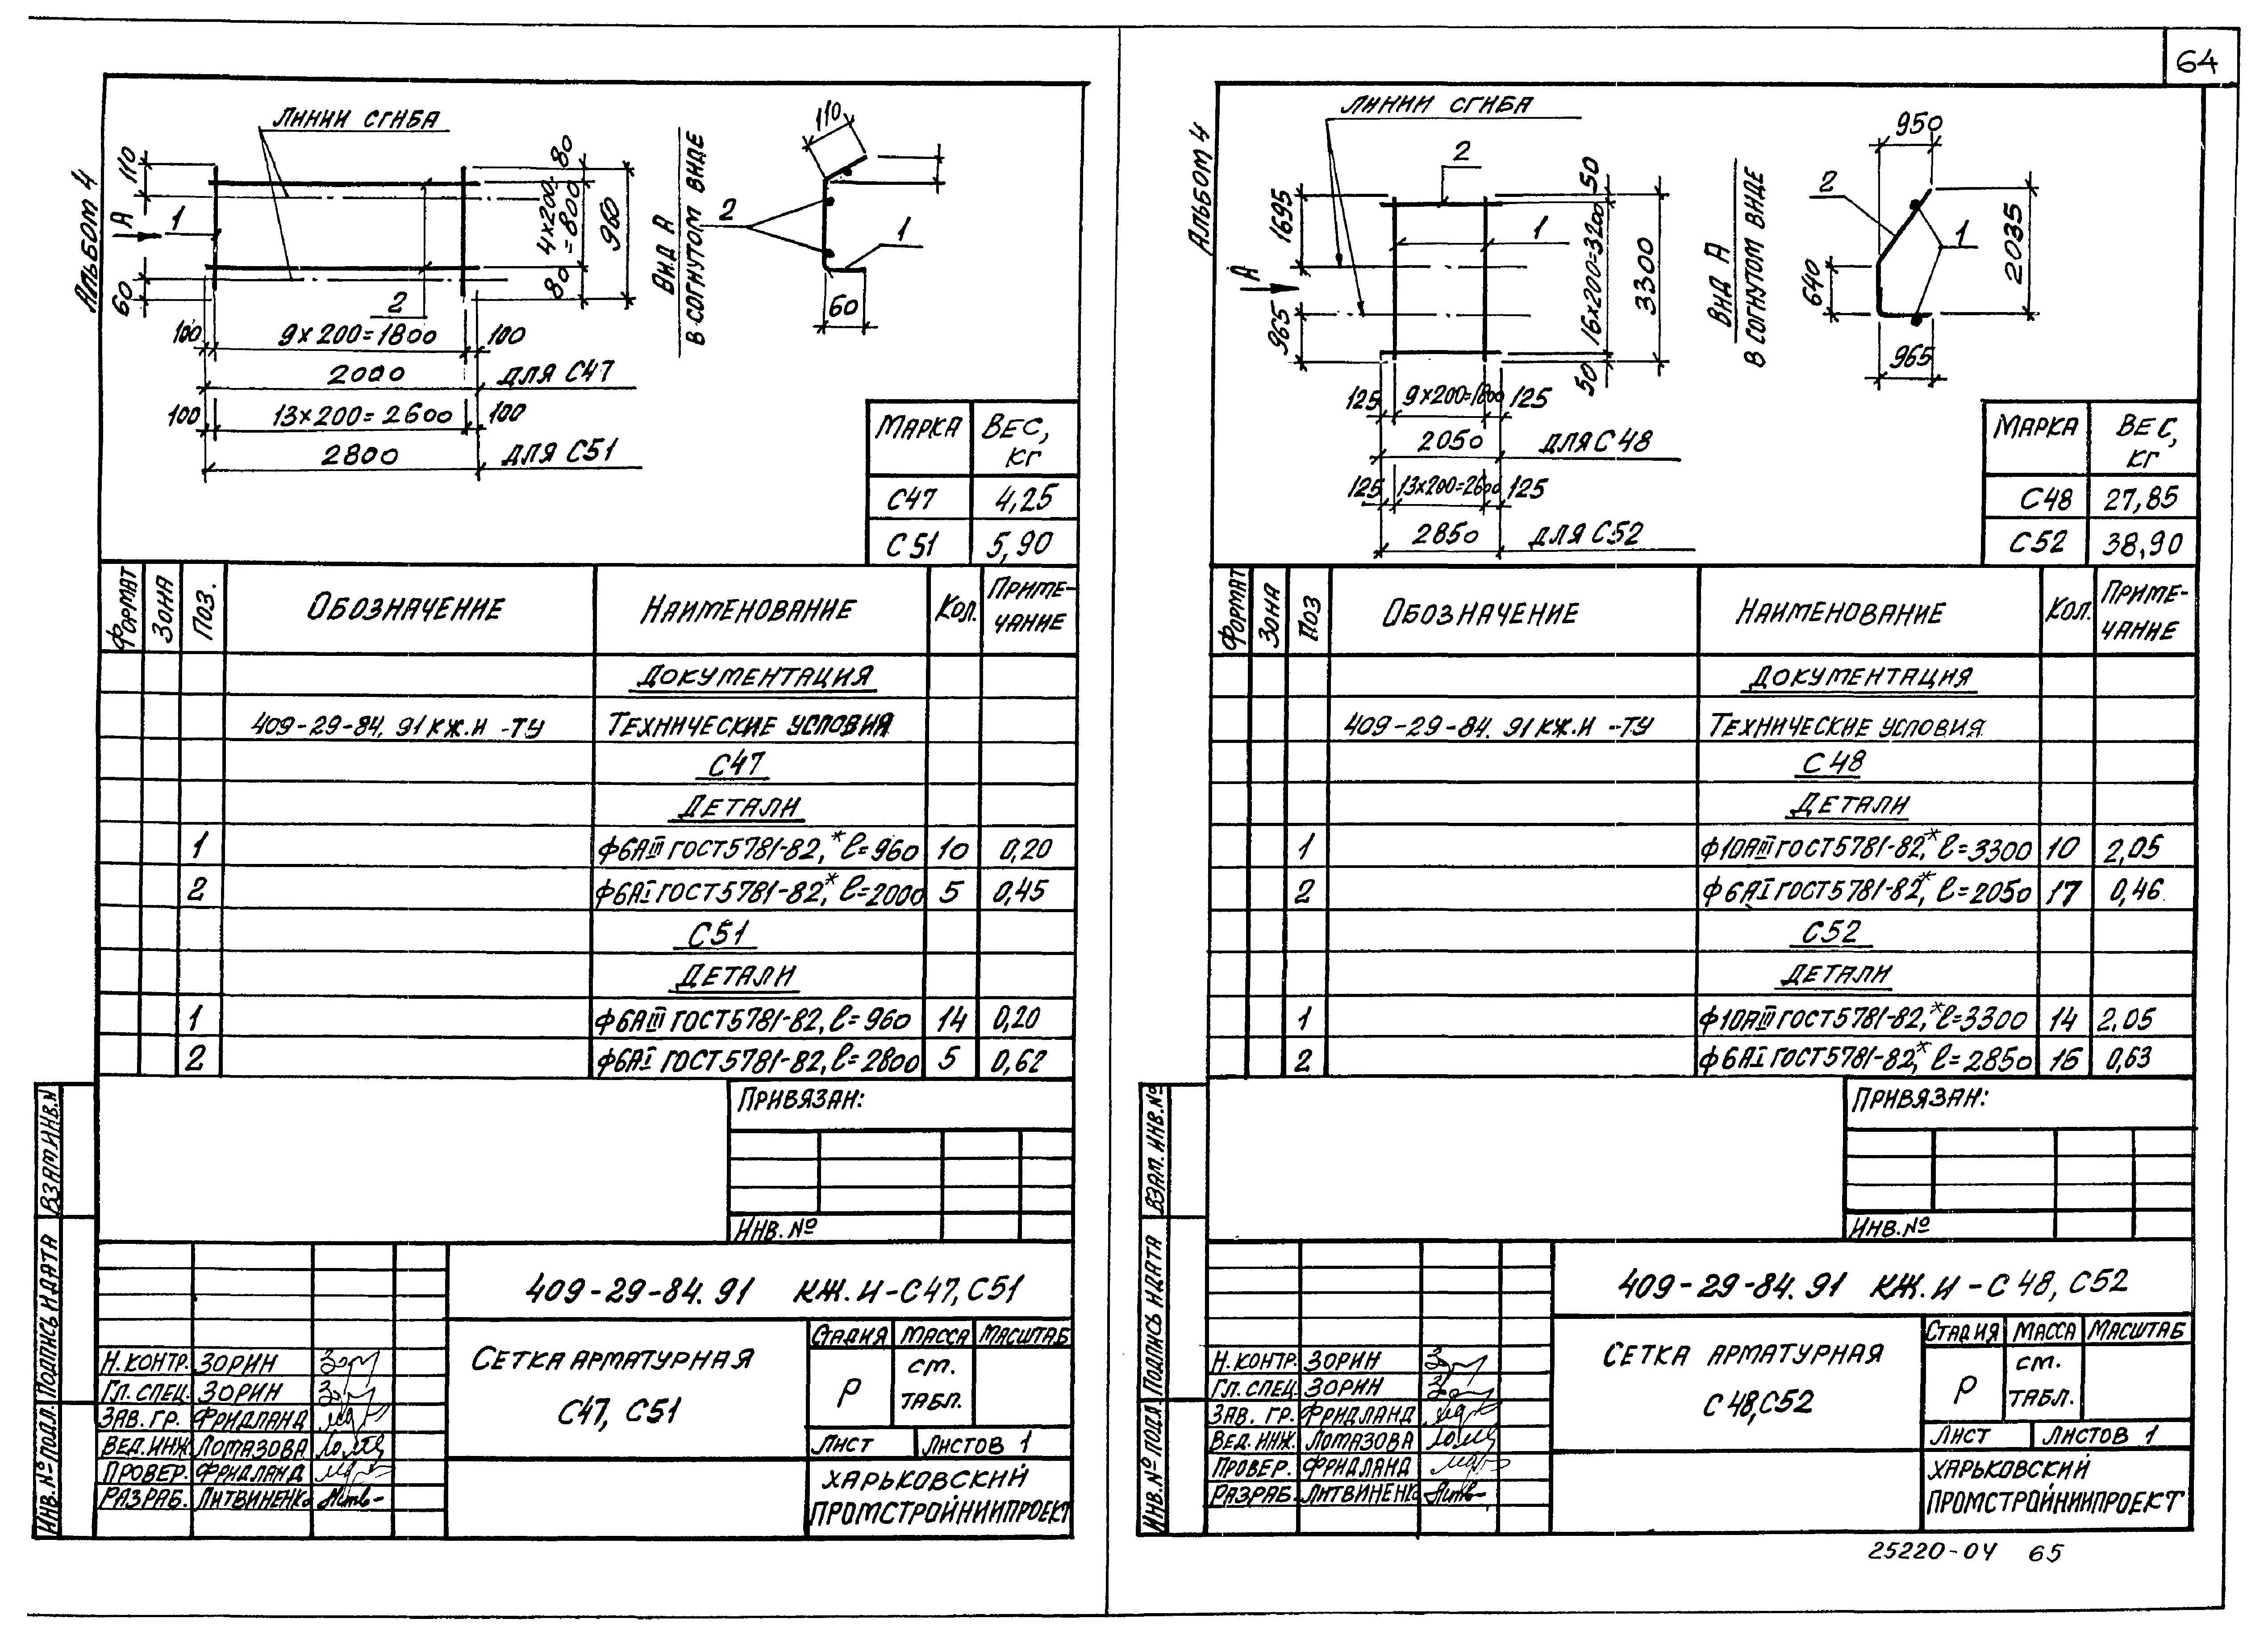 64
Альбом 4
Линии сгиба
110
60
А
1
2
80
4×200=
=800
80
960
100
9×200=1800
100
2000
для С47
100
13×200=2600
100
2800
для С51
Вид А
в согнутом виде
110
2
1
60
Марка
Вес, кг
С47
4,25
С51
5,90
Формат
Зона
Поз.
Обозначение
Наименование
Кол.
Примечание
Документация
409-29-84.91 КЖ.И -ТУ
Технические условия
С47
Детали
1
ф6АIII ГОСТ 5781-82,* ℓ=960
10
0,20
2
ф6АI ГОСТ 5781-82,* ℓ=2000
5
0,45
С51
Детали
1
ф6АIII ГОСТ 5781-82, ℓ=960
14
0,20
2
ф6АI ГОСТ 5781-82, ℓ=2800
5
0,62
Привязан:
Инв. №
Взам.инв.№
Подпись и дата
Инв.№ подл.
409-29-84.91 КЖ.И-С47, С51
Н.контр. Зорин
Гл.спец. Зорин
Зав. гр. Фридланд
Вед.инж. Ломазова
Провер. Фридланд
Разраб. Литвиненко
Сетка арматурная
С47, С51
Стадия
Масса
Масштаб
Р
см.
табл.
Лист
Листов 1
Харьковский
Промстройниипроект
Альбом 4
Линии сгиба
1695
965
А
2
1
50
16×200=3200
50
3300
125
9×200=1800
125
2050
для С48
125
13×200=2600
125
2850
для С52
Вид А
в согнутом виде
950
2
1
2035
640
965
Марка
Вес, кг
С48
27,85
С52
38,90
Формат
Зона
Поз
Обозначение
Наименование
Кол.
Примечание
Документация
409-29-84.91 КЖ.И -ТУ
Технические условия
С48
Детали
1
ф10АIII ГОСТ 5781-82,* ℓ=3300
10
2,05
2
ф6АI ГОСТ 5781-82,* ℓ=2050
17
0,46
С52
Детали
1
ф10АIII ГОСТ 5781-82,* ℓ=3300
14
2,05
2
ф6АI ГОСТ 5781-82,* ℓ=2850
16
0,63
Привязан:
Инв. №
Взам. инв.№
Подпись и дата
Инв.№ подл.
409-29-84.91 КЖ.И-С48, С52
Н.контр. Зорин
Гл.спец. Зорин
Зав. гр. Фридланд
Вед.инж. Ломазова
Провер. Фридланд
Разраб. Литвиненко
Сетка арматурная
С48, С52
Стадия
Масса
Масштаб
Р
см.
табл.
Лист
Листов 1
Харьковский
Промстройниипроект
25220-04 65